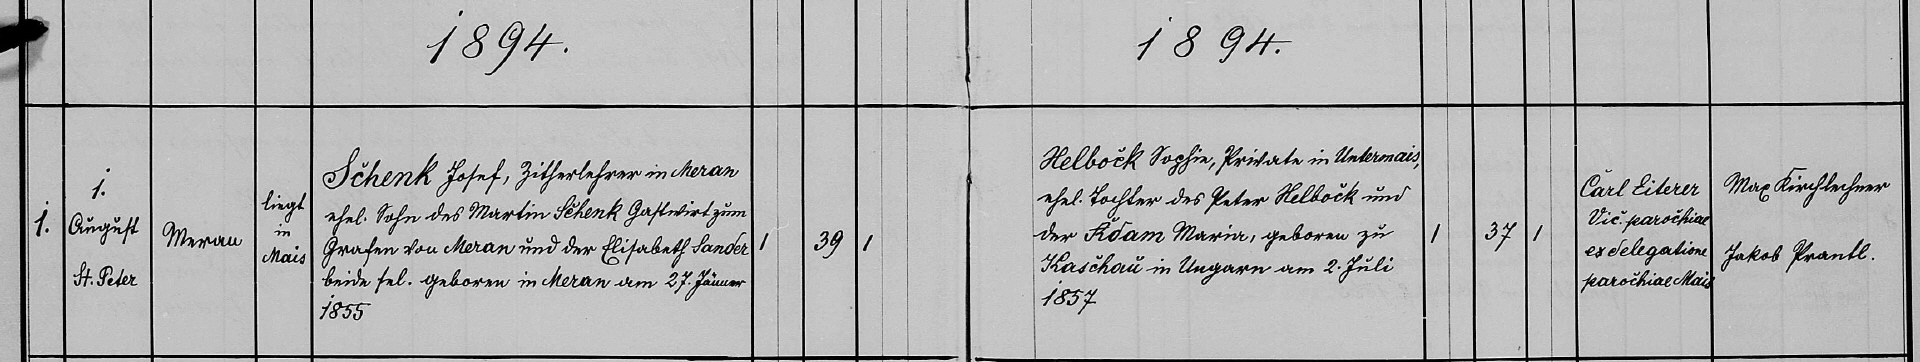 1894.
1894.
1.
1.
August
St. Peter
Meran
liegt
in
Mais
Schenk Josef, Zitherlehrer in Meran
ehel. Sohn des Martin Schenk Gastwirt zum
Grafen von Meran und der Elisabeth Sander
beide sel. geboren in Meran am 27. Jänner
1855
1
39
1
Helbock Sophie, Private in Untermais,
ehel. Tochter des Peter Helbock und
der Adam Maria, geboren zu
Kaschau in Ungarn am 2. Juli
1857
1
37
1
Carl Eiterer
Vic. parochiae
ex delegatione
parochiae Mais
Max Kirchlechner
Jakob Prantl.